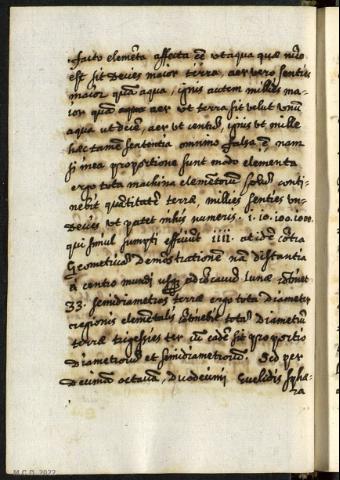 facto elemēta affecta eē ut aqua quæ
est sit Decies maior terra, aer vero senties
maior quā aqua, ignis autem millies ma-
ior quā aqua ut terra sit velut unū
aqua ut decē, aer ut centū, ignis ut mille
hæc tamē sententia omnino falsa ē nam
si in ea proportione sunt modo elementa
ergo tota machina elemētorum conti-
nebit quātitatē terræ, millies senties un-
decies ut patet in his numeris. 1. 10. 100. 1000.
qui simul sumpti efficiūt 1111. at id ē cōtra
Geometricā Demōstrationē nā distantia
a centro mundi usq ad cōcavū lunæ cōtinet
33. semidiametros terræ ergo tota Diameter
regionis elemētalis cōtinebit totā Diametrū
terræ trigessies ter cū eadē sit proportio
Diametrorū et semidiametrorū. Sed per
Decimā octavā, Duodecimi Euclidis sphæ-
ra
M.C.D. 2022